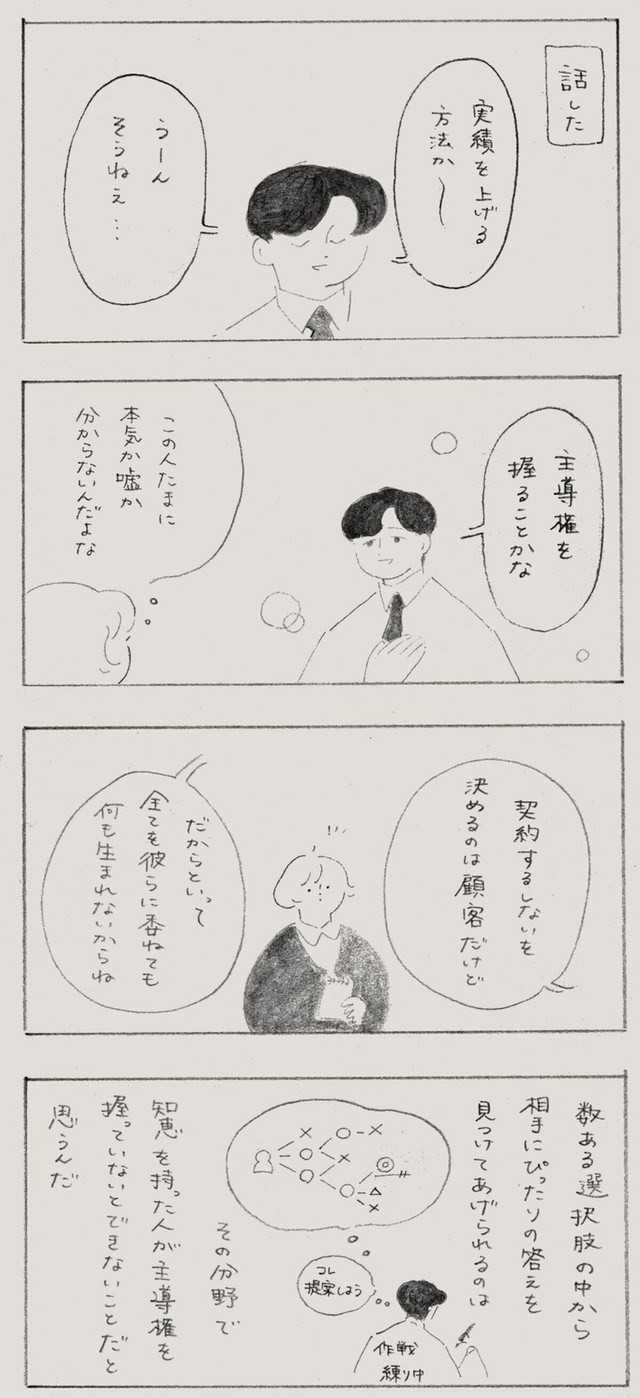 話した
実績を上げる
方法か〜
うーん
そうねぇ…
主導権を
握ることかな
この人たまに
本気か嘘か
分からないんだよな
契約するしないを
決めるのは顧客だけど
だからといって
全てを彼らに委ねても
何も生まれないからね
数ある選択肢の中から
相手にぴったりの答えを
見つけてあげられるのは
コレ
提案しよう
作戦
練り中
その分野で
知恵を持った人が主導権を
握っていないとできないことだと
思うんだ